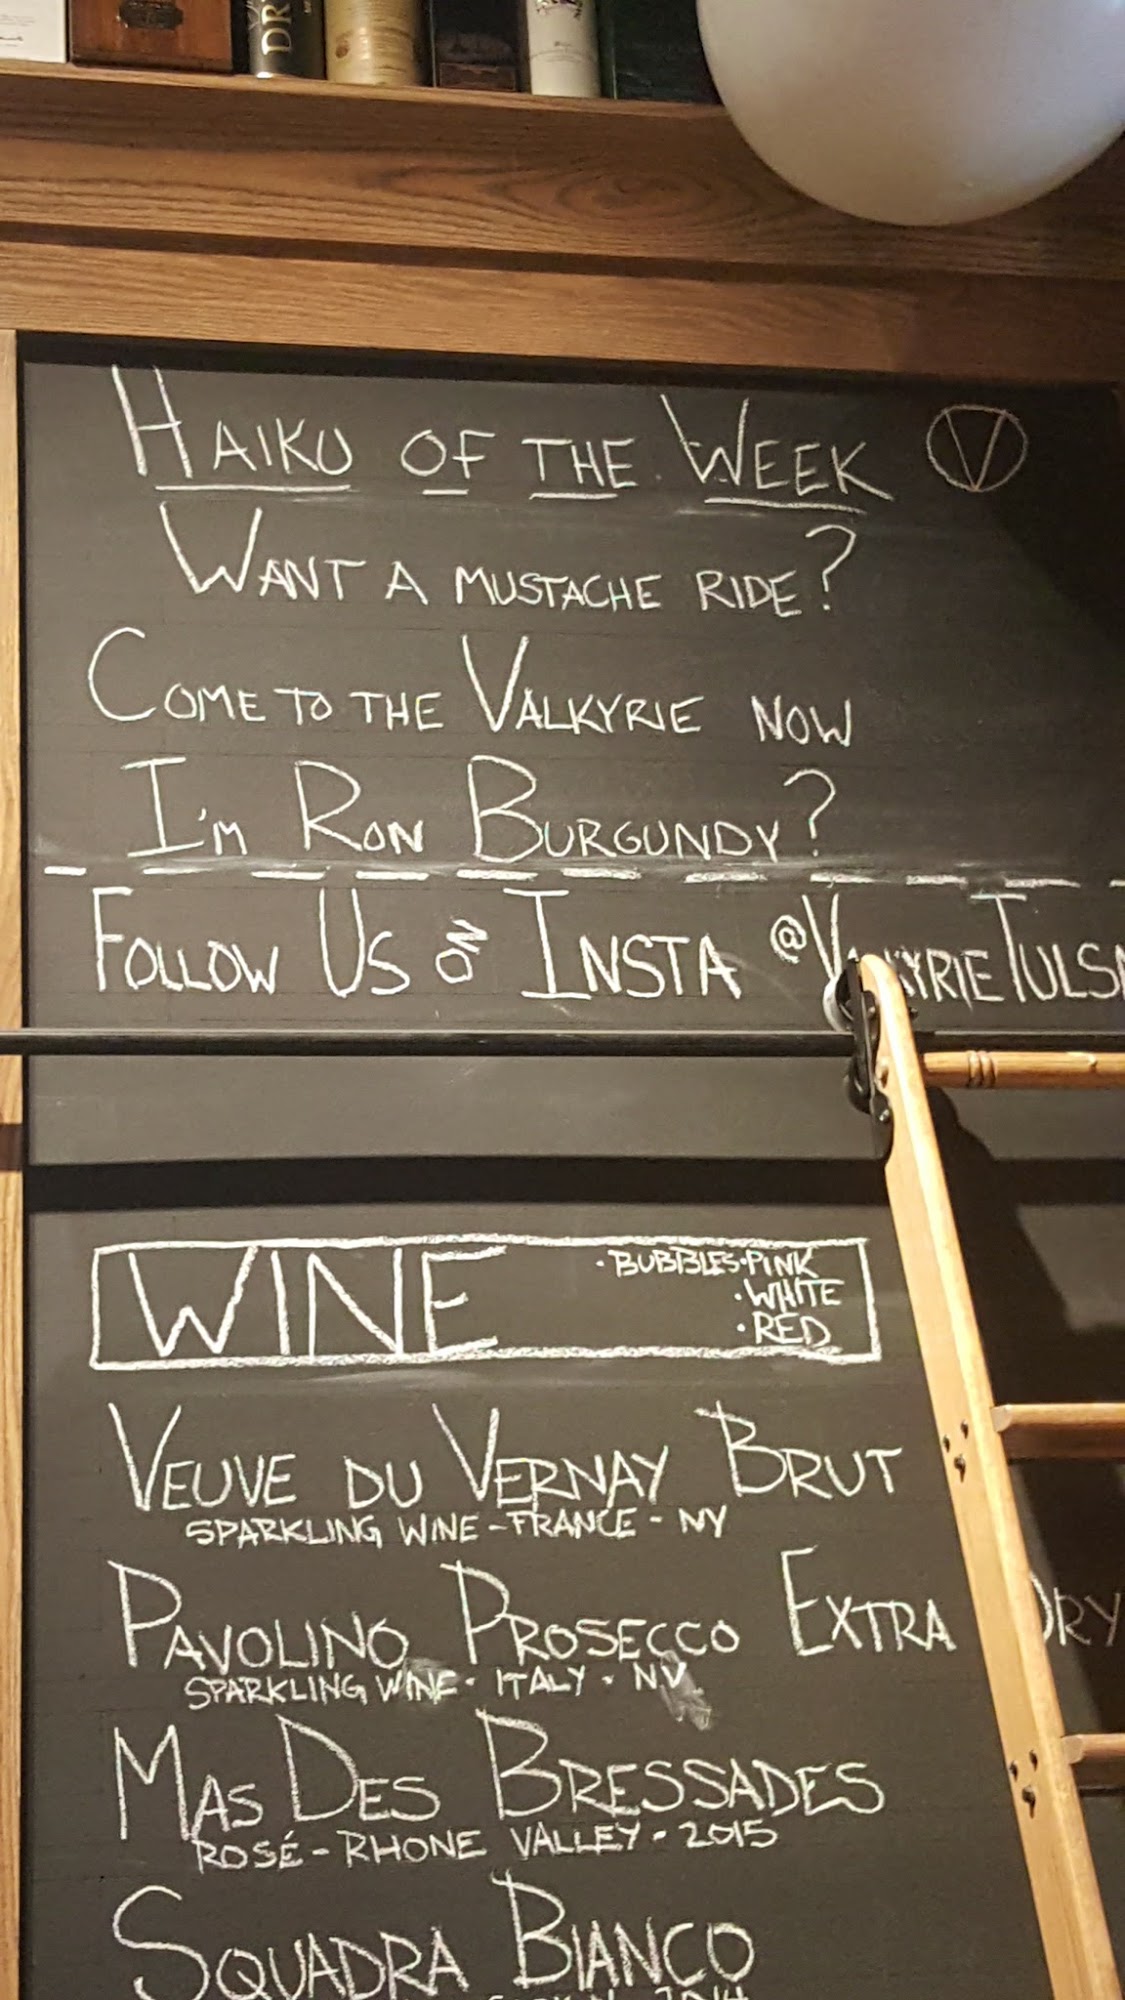 DR
HAIKU OF THE WEEK V
WANT A MUSTACHE RIDE?
COME TO THE VALKYRIE NOW
I'M RON BURGUNDY?
FOLLOW US ON INSTA @VALKYRIETULSA
WINE
• BUBBLES • PINK
• WHITE
• RED
VEUVE DU VERNAY BRUT
SPARKLING WINE - FRANCE - NY
PAVOLINO PROSECCO EXTRA DRY
SPARKLING WINE • ITALY • NV
MAS DES BRESSADES
ROSÉ - RHONE VALLEY - 2015
SQUADRA BIANCO
2014